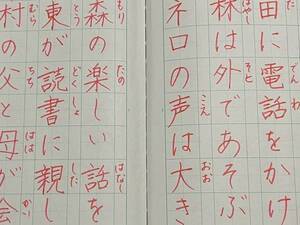 田に電話をかけ
でんわ
林は外であそぶ
はやし そと
ネロの声は大き
こえ おお
森の楽しい話を
もり たの はなし
東が読書に親し
とう どくしょ した
村の父と母が会
ちち はは かい